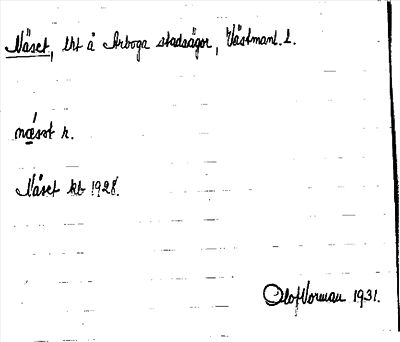 Näset, lht å Arboga stadsägor, Västmanl. l.
næ̀sət n.
Näset kb 1928.
Olof Norman 1931.